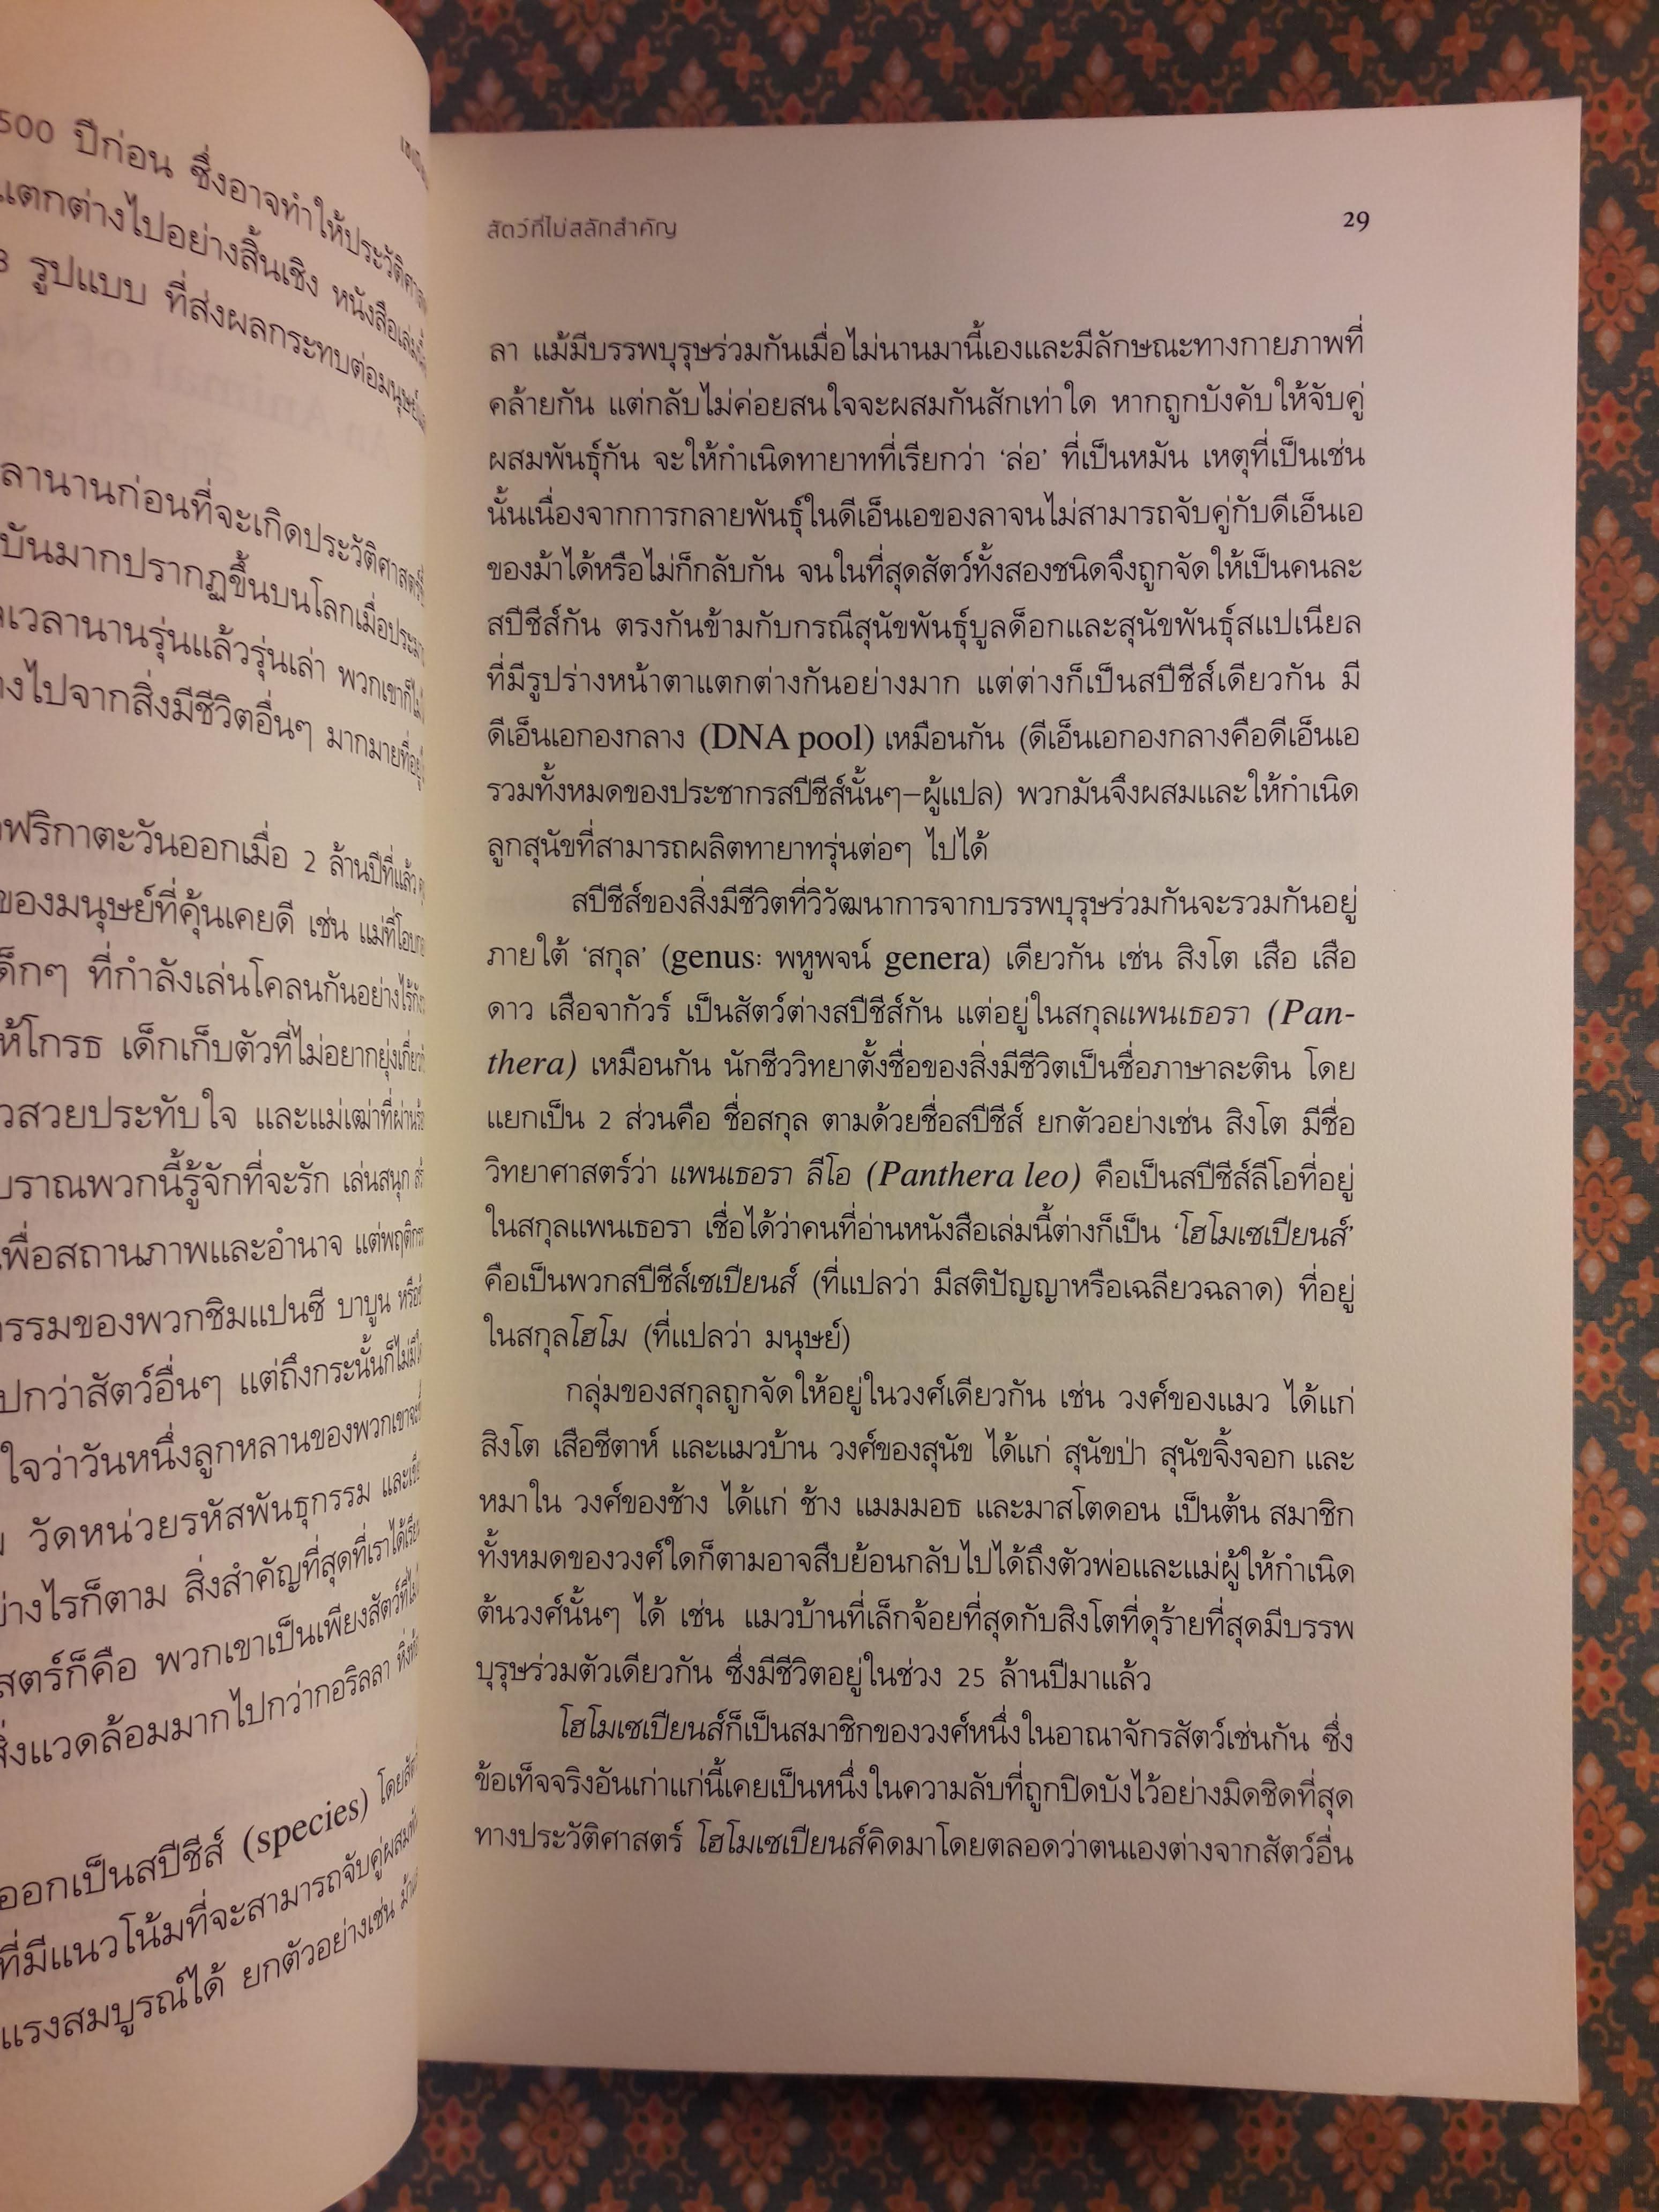 500 ปีก่อน ซึ่งอาจทำให้ประวัติศาส
แตกต่างไปอย่างสิ้นเชิง หนังสือเล่มนี้
3 รูปแบบ ที่ส่งผลกระทบต่อมนุษย์
ลานานก่อนที่จะเกิดประวัติศาสตร์
บันมากปรากฏขึ้นบนโลกเมื่อประมา
เวลานานรุ่นแล้วรุ่นเล่า พวกเขาก็ไม่
งไปจากสิ่งมีชีวิตอื่นๆ มากมายที่อยู่
ฟริกาตะวันออกเมื่อ 2 ล้านปีที่แล้ว
ของมนุษย์ที่คุ้นเคยดี เช่น แม่ที่โอบกอ
ด็กๆ ที่กำลังเล่นโคลนกันอย่างไร้กัง
ห้โกรธ เด็กเก็บตัวที่ไม่อยากยุ่งเกี่ยว
วสวยประทับใจ และแม่เฒ่าที่ผ่านร้อ
บราณพวกนี้รู้จักที่จะรัก เล่นสนุก
เพื่อสถานภาพและอำนาจ แต่พฤติกร
กรรมของพวกชิมแปนซี บาบูน หรือ
ปกว่าสัตว์อื่นๆ แต่ถึงกระนั้นก็ไม่มี
ใจว่าวันหนึ่งลูกหลานของพวกเขาจะ
วัดหน่วยรหัสพันธุกรรม และเขีย
ย่างไรก็ตาม สิ่งสำคัญที่สุดที่เราได้เรีย
สตร์ก็คือ พวกเขาเป็นเพียงสัตว์ที่ไม่
สิ่งแวดล้อมมากไปกว่ากอริลลา หิ่งห้อ
ออกเป็นสปีชีส์ (species) โดยสัต
ที่มีแนวโน้มที่จะสามารถจับคู่ผสมพั
แรงสมบูรณ์ได้ ยกตัวอย่างเช่น ม้า
สัตว์ที่ไม่สลักสำคัญ 29
ลา แม้มีบรรพบุรุษร่วมกันเมื่อไม่นานมานี้เองและมีลักษณะทางกายภาพที่
คล้ายกัน แต่กลับไม่ค่อยสนใจจะผสมกันสักเท่าใด หากถูกบังคับให้จับคู่
ผสมพันธุ์กัน จะให้กำเนิดทายาทที่เรียกว่า ‘ล่อ’ ที่เป็นหมัน เหตุที่เป็นเช่น
นั้นเนื่องจากการกลายพันธุ์ในดีเอ็นเอของลาจนไม่สามารถจับคู่กับดีเอ็นเอ
ของม้าได้หรือไม่ก็กลับกัน จนในที่สุดสัตว์ทั้งสองชนิดจึงถูกจัดให้เป็นคนละ
สปีชีส์กัน ตรงกันข้ามกับกรณีสุนัขพันธุ์บูลด็อกและสุนัขพันธุ์สแปเนียล
ที่มีรูปร่างหน้าตาแตกต่างกันอย่างมาก แต่ต่างก็เป็นสปีชีส์เดียวกัน มี
ดีเอ็นเอกองกลาง (DNA pool) เหมือนกัน (ดีเอ็นเอกองกลางคือดีเอ็นเอ
รวมทั้งหมดของประชากรสปีชีส์นั้นๆ–ผู้แปล) พวกมันจึงผสมและให้กำเนิด
ลูกสุนัขที่สามารถผลิตทายาทรุ่นต่อๆ ไปได้
สปีชีส์ของสิ่งมีชีวิตที่วิวัฒนาการจากบรรพบุรุษร่วมกันจะรวมกันอยู่
ภายใต้ ‘สกุล’ (genus: พหูพจน์ genera) เดียวกัน เช่น สิงโต เสือ เสือ
ดาว เสือจากัวร์ เป็นสัตว์ต่างสปีชีส์กัน แต่อยู่ในสกุลแพนเธอรา (Pan-
thera) เหมือนกัน นักชีววิทยาตั้งชื่อของสิ่งมีชีวิตเป็นชื่อภาษาละติน โดย
แยกเป็น 2 ส่วนคือ ชื่อสกุล ตามด้วยชื่อสปีชีส์ ยกตัวอย่างเช่น สิงโต มีชื่อ
วิทยาศาสตร์ว่า แพนเธอรา ลีโอ (Panthera leo) คือเป็นสปีชีส์ลีโอที่อยู่
ในสกุลแพนเธอรา เชื่อได้ว่าคนที่อ่านหนังสือเล่มนี้ต่างก็เป็น ‘โฮโมเซเปียนส์’
คือเป็นพวกสปีชีส์เซเปียนส์ (ที่แปลว่า มีสติปัญญาหรือเฉลียวฉลาด) ที่อยู่
ในสกุลโฮโม (ที่แปลว่า มนุษย์)
กลุ่มของสกุลถูกจัดให้อยู่ในวงศ์เดียวกัน เช่น วงศ์ของแมว ได้แก่
สิงโต เสือชีตาห์ และแมวบ้าน วงศ์ของสุนัข ได้แก่ สุนัขป่า สุนัขจิ้งจอก และ
หมาใน วงศ์ของช้าง ได้แก่ ช้าง แมมมอธ และมาสโตดอน เป็นต้น สมาชิก
ทั้งหมดของวงศ์ใดก็ตามอาจสืบย้อนกลับไปได้ถึงตัวพ่อและแม่ผู้ให้กำเนิด
ต้นวงศ์นั้นๆ ได้ เช่น แมวบ้านที่เล็กจ้อยที่สุดกับสิงโตที่ดุร้ายที่สุดมีบรรพ
บุรุษร่วมตัวเดียวกัน ซึ่งมีชีวิตอยู่ในช่วง 25 ล้านปีมาแล้ว
โฮโมเซเปียนส์ก็เป็นสมาชิกของวงศ์หนึ่งในอาณาจักรสัตว์เช่นกัน ซึ่ง
ข้อเท็จจริงอันเก่าแก่นี้เคยเป็นหนึ่งในความลับที่ถูกปิดบังไว้อย่างมิดชิดที่สุด
ทางประวัติศาสตร์ โฮโมเซเปียนส์คิดมาโดยตลอดว่าตนเองต่างจากสัตว์อื่น